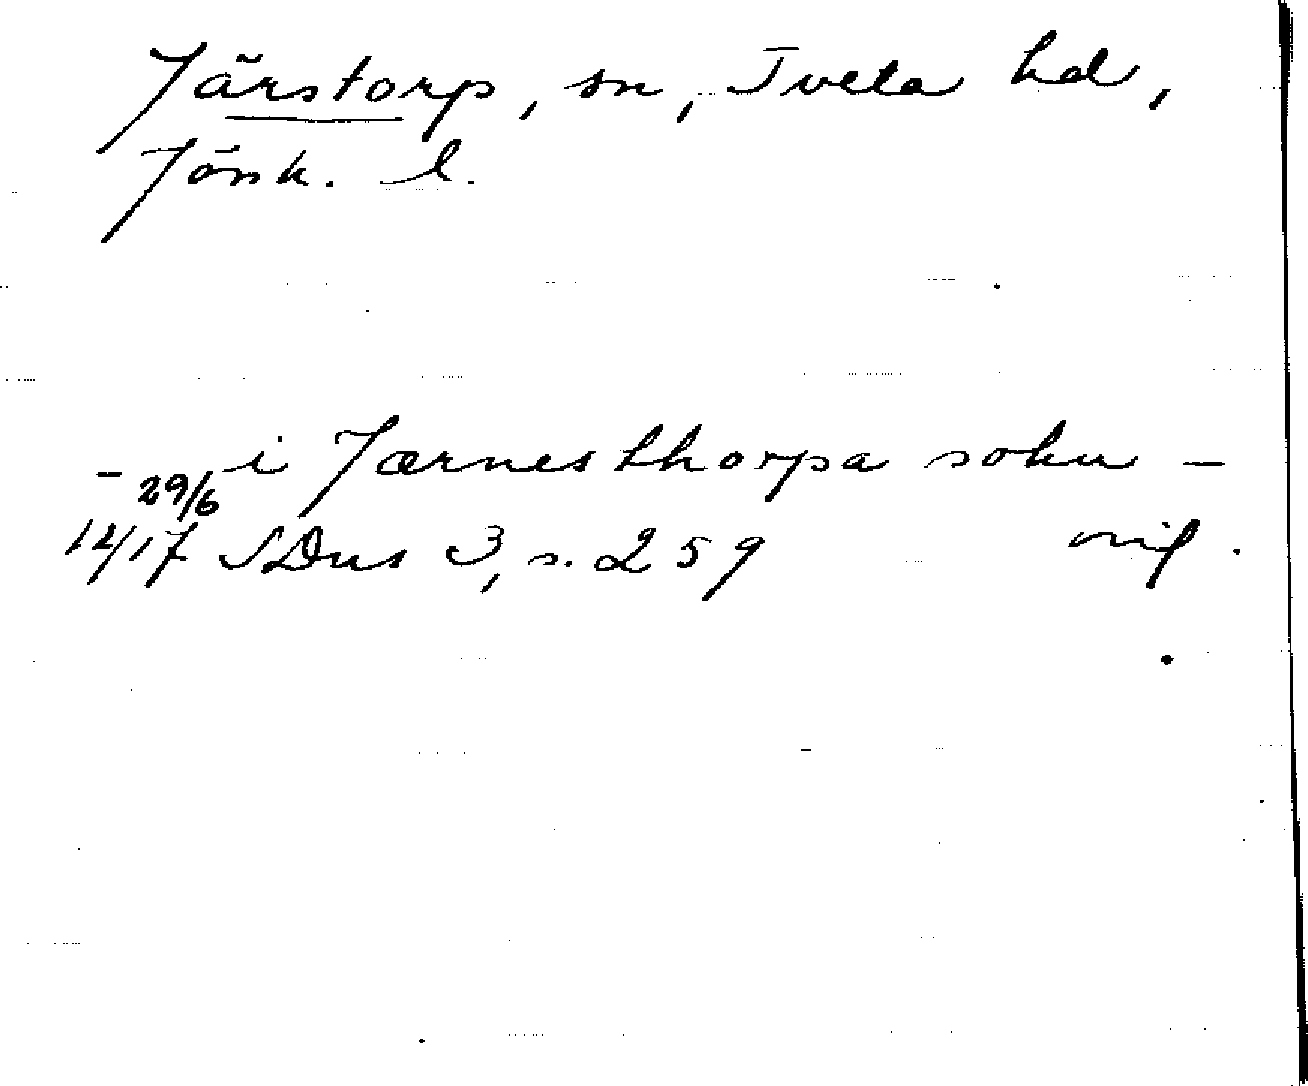 Järstorp, sn, Tveta hd,
Jönk. l.
– i Jærnesthorpa sokn –
29/6
1417 SDns 3, s. 259 orig.